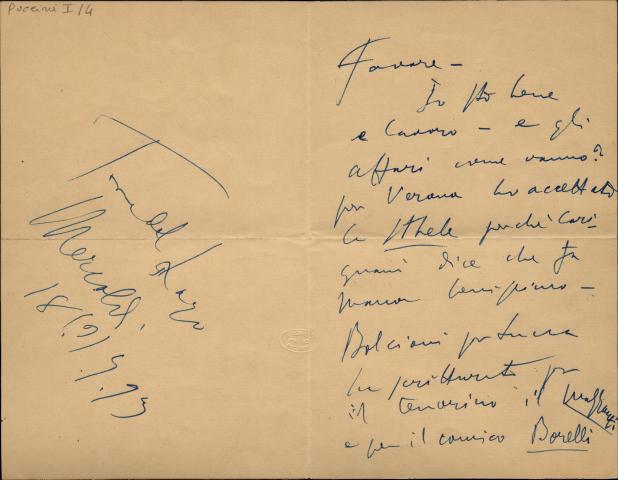 Puccini I/4
Torre del Lago
Mercoldì,
18 (?) 9. 93
favore –
Io sto bene
e lavoro – e gli
affari come vanno?
per Verona ho accettato
la Sthele perchè Cari-
gnani dice che fa
manon benissimo –
Bolcioni per Lucca
ha scritturato per
il tenorino il
e per il comico Borelli